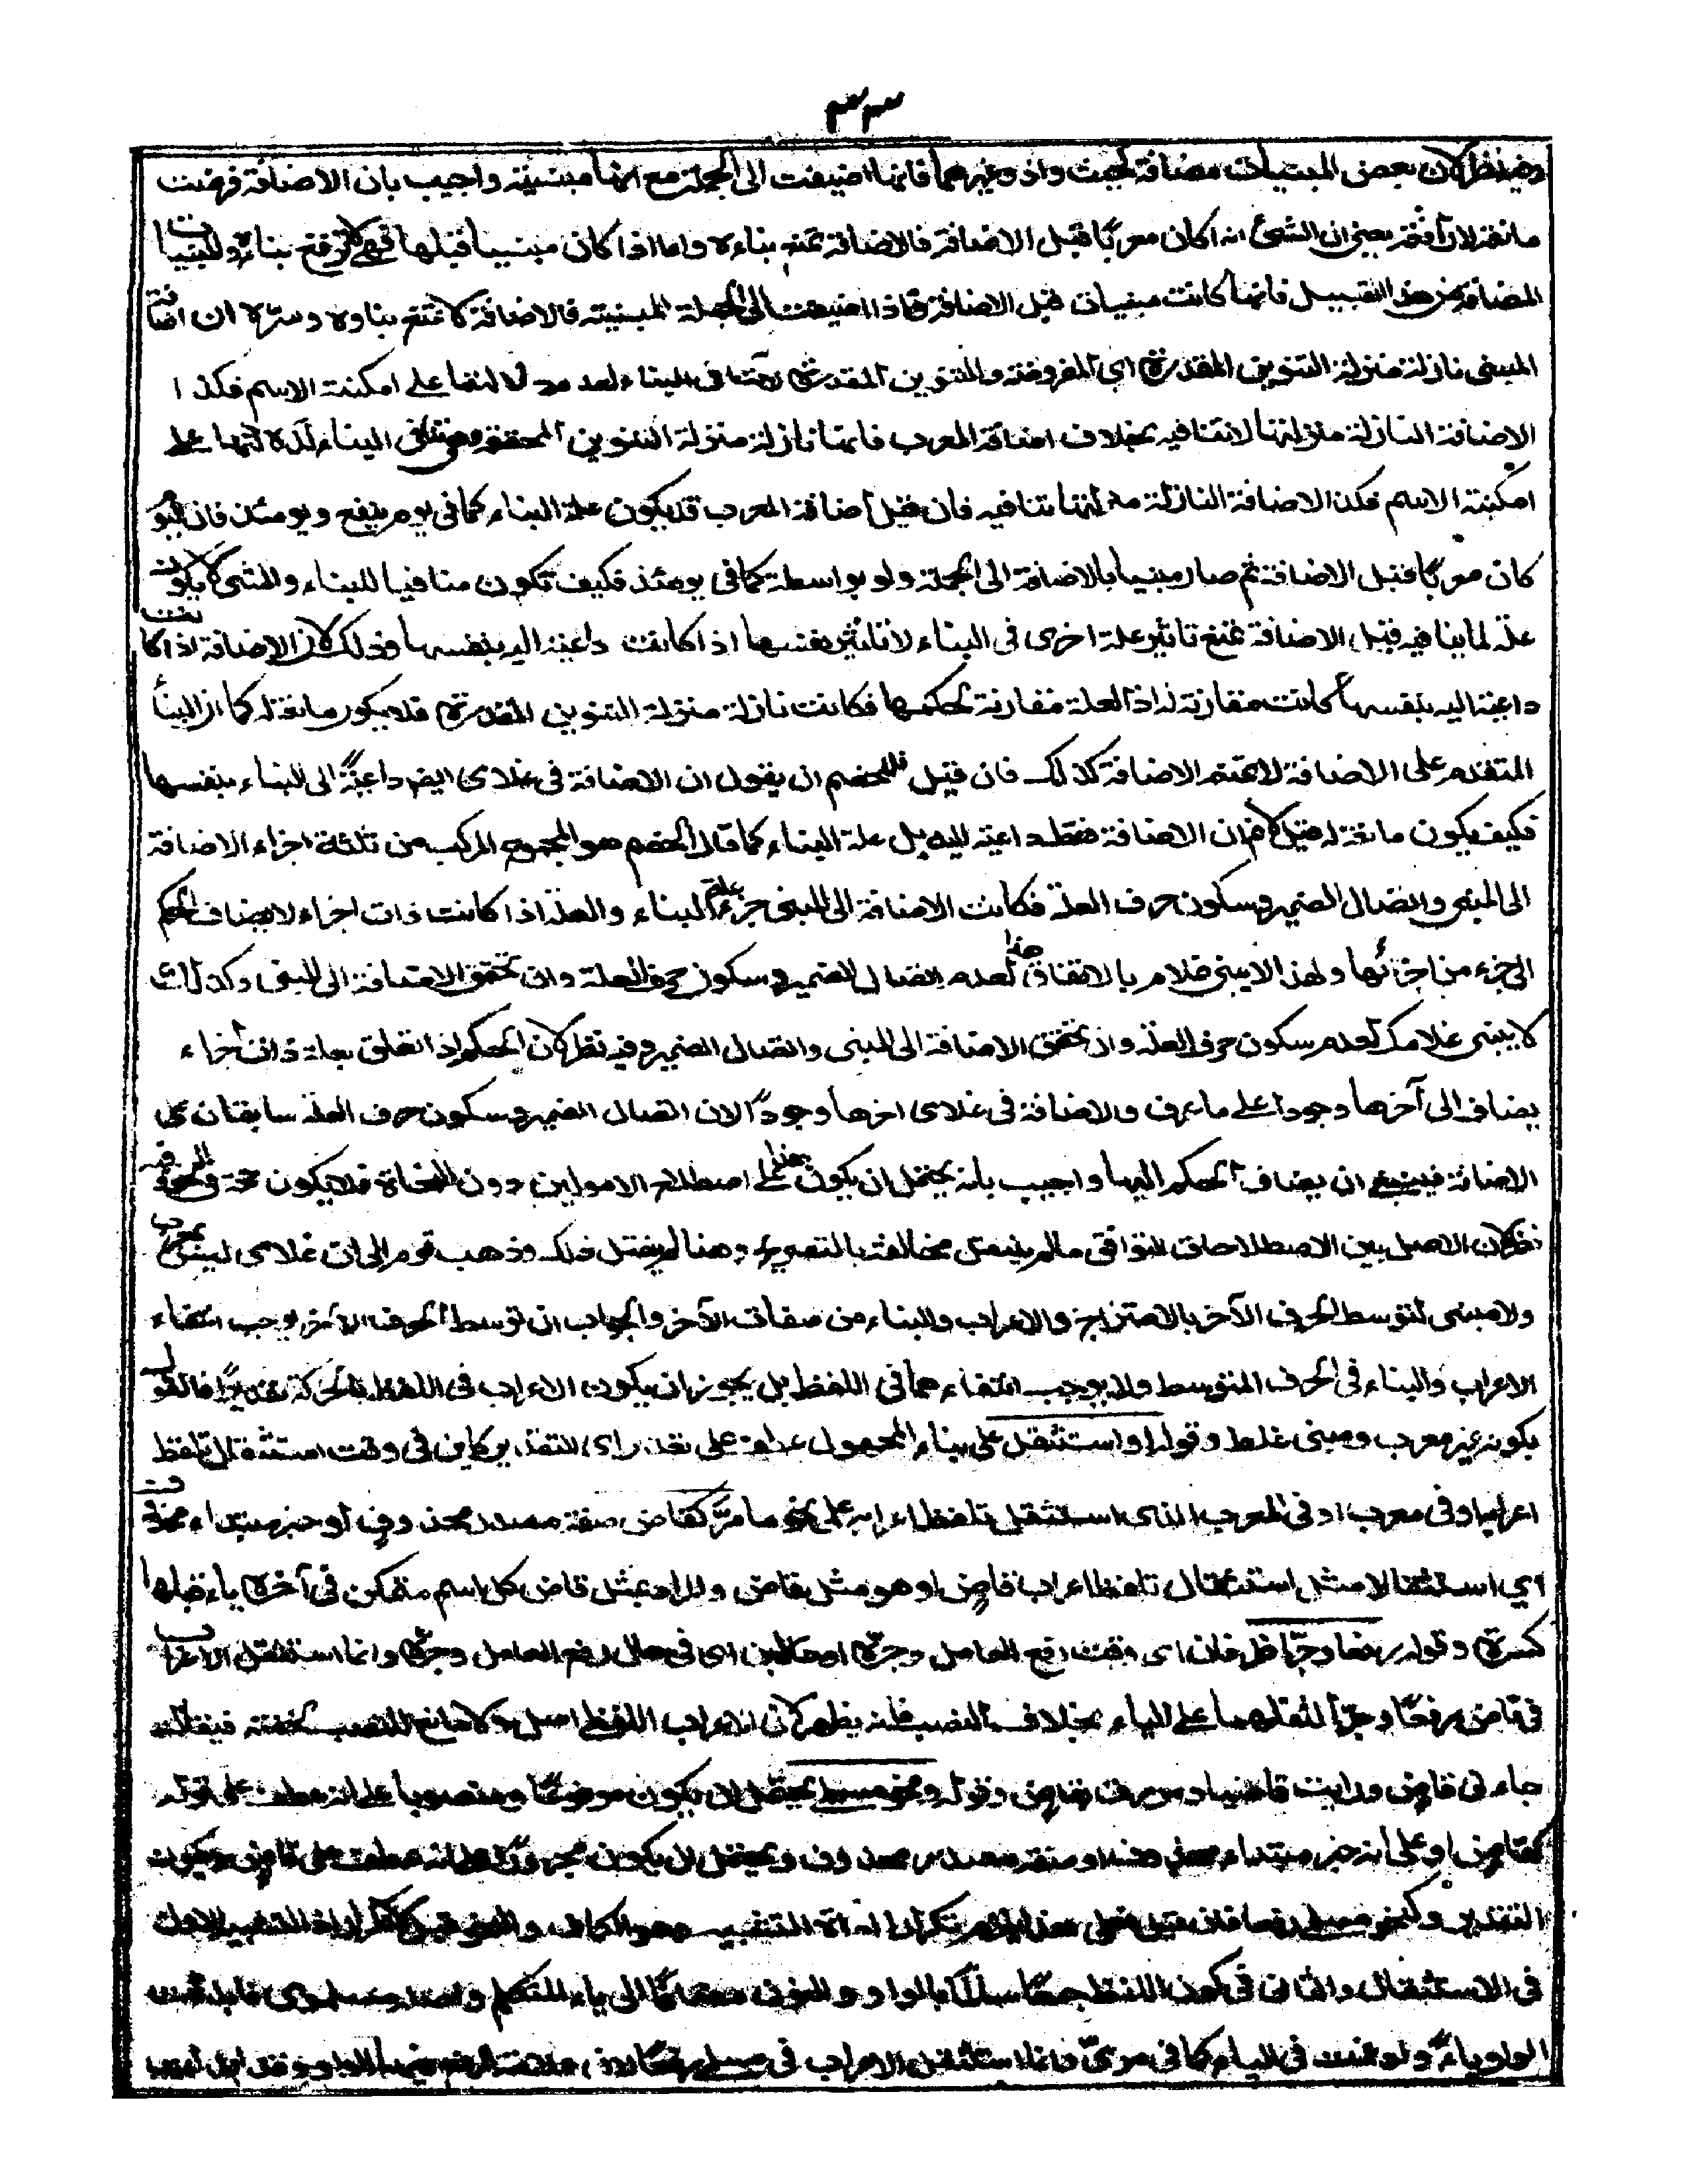 ٣٣
وفيه نظر لان بعض المبنيات مضافة كحيث واذ وغيرهما فانها اضيفت الى الجملة مع انها مبنية واجيب بان الاضافة فرضت
مانعة لا رافعة يعنى ان الشئ اذا كان معربا قبل الاضافة فالاضافة تمنع بناءه واما اذا كان مبنيا قبلها فهى لا ترفع بناءه والمبنيات
المضافة من هذا القبيل فانها كانت مبنيات قبل الاضافة فاذا اضيفت الى الجملة المبنية فالاضافة لا تمنع بناوه وسره ان اضافة
المبنى نازلة منزلة التنوين المقدرة اى المفروضة والتنوين المقدرة لا تنافى البناء لعدم دلالتها على امكنة الاسم فكذا
الاضافة النازلة منزلتها لا تنافيه بخلاف اضافة المعرب فانها نازلة منزلة التنوين المحققة وهى تنافى البناء لدلالتها على
امكنة الاسم فكذا الاضافة النازلة منزلتها تنافيه فان قيل اضافة المعرب قد يكون علة البناء كما فى يوم ينفع ويومئذ فان اليوم
كان معربا قبل الاضافة ثم صار مبنيا بالاضافة الى الجملة ولو بواسطة كما فى يومئذ فكيف تكون منافيا للبناء والشئ لا يكون
علة لما ينافيه قيل الاضافة تمنع تاثير علة اخرى فى البناء لا تاثير نفسها اذا كانت داعية اليه بنفسها وذلك لان الاضافة اذا كانت
داعية اليه بنفسها كانت مقارنة له اذ العلة مقارنة لحكمها فكانت نازلة منزلة التنوين المقدرة فلا يكون مانعة له كما ان البناء
المتقدم على الاضافة لا تمنعه الاضافة كذلك فان قيل للخصم ان يقول ان الاضافة فى غلامى ايضا داعية الى البناء بنفسها
فكيف يكون مانعة له قيل لا نم ان الاضافة فقط داعية اليه بل علة البناء كما قال الخصم هو المجموع المركب من ثلثة اجزاء الاضافة
الى المبنى واتصال الضمير وسكون حرف العلة فكانت الاضافة الى المبنى جزء علة البناء والعلة اذا كانت ذات اجزاء لا يضاف الحكم
الى جزء من اجزائها ولهذا لا يبنى غلام هذا بالاتفاق لعدم اتصال الضمير وسكون حرف العلة وان تحقق الاضافة الى المبنى وكذلك
لا يبنى غلامك لعدم سكون حرف العلة وان تحقق الاضافة الى المبنى واتصال الضمير وفيه نظر لان الحكم اذا تعلق بعلة ذات اجزاء
يضاف الى آخرها وجودا على ما عرف والاضافة فى غلامى اخرها وجودا لان اتصال الضمير وسكون حرف العلة سابقتان على
الاضافة فينبغى ان يضاف الحكم اليها واجيب بانه يحتمل ان يكون هذا على اصطلاح الاصوليين دون النحاة فلا يكون حجة
لان الاصل بين الاصطلاحات التوافق ما لم ينقل مخالفة بالتصريح وهنا لم ينقل ذلك وذهب قوم الى ان غلامى ليس بمعرب
ولا مبنى لتوسط الحرف الآخر بالامتزاج والاعراب والبناء من صفات الآخر والجواب ان توسط الحرف الآخر يوجب انتفاء
الاعراب والبناء فى الحرف المتوسط ولا يوجب انتفاءهما فى اللفظ بل يجوز ان يكون الاعراب فى اللفظ بالحركة تقديرا فالقول
بكونه غير معرب ومبنى غلط وقوله او استثقل على بناء المجهول عطف على تعذر اى التقدير كاين فى وقت استثقال تلفظ
اعرابه او فى معرب او فى المعرب الذى استثقل تلفظ اعرابه على نحو ما مر كقاض صفة مصدر محذوف او خبر مبتداء محذوف
اى استثقالا مثل استثقال تلفظ اعراب قاض او هو مثل قاض والمراد بمثل قاض كل اسم متمكن فى آخره ياء قبلها
كسرة وقوله رفعا وجرا ظرفان اى وقت رفع العامل وجره او حالين اى فى حال رفع العامل وجره وانما استثقل الاعراب
فى قاض رفعا وجرا لثقلهما على الياء بخلاف النصب فانه يظهر لان الاعراب اللفظى اصل ولا مانع للنصب لخفته فيقال
جاءنى قاض ورايت قاضيا ومررت بقاض وقوله ونحو مسلمى يحتمل ان يكون مرفوعا ومنصوبا على انه عطف على قوله
كقاض او على انه خبر مبتداء محذوف او صفة مصدر محذوف ويحتمل ان يكون مجرورا على انه عطف على قاض ويكون
التقدير وكنحو مسلمى رفعا فان قيل فعلى هذا يلزم تكرار اداة التشبيه وهو الكاف والنحو قيل
فى الاستثقال والثانى فى كون اللفظ جمعا سالما بالواو والنون مضافا الى ياء المتكلم واصله مسلموى فابدلت
الواو ياء وادغمت فى الياء كما فى مرمىّ وانما استثقل الاعراب فى مسلمى رفعا لان علامة الرفع فيها الواو وقد ابدلت